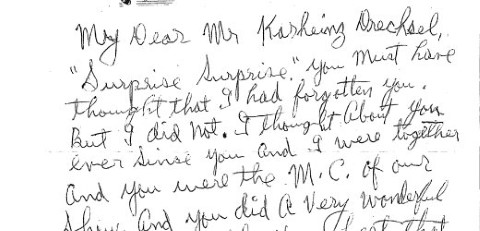 My Dear Mr Karheinz Drechsel,
"Surprise Surprise." you must have
thought that I had forgotten you.
But I did not. I thought About you
ever sinse you and I were together
and you were the M.C. of our
Show. And you did a very wonderful
that